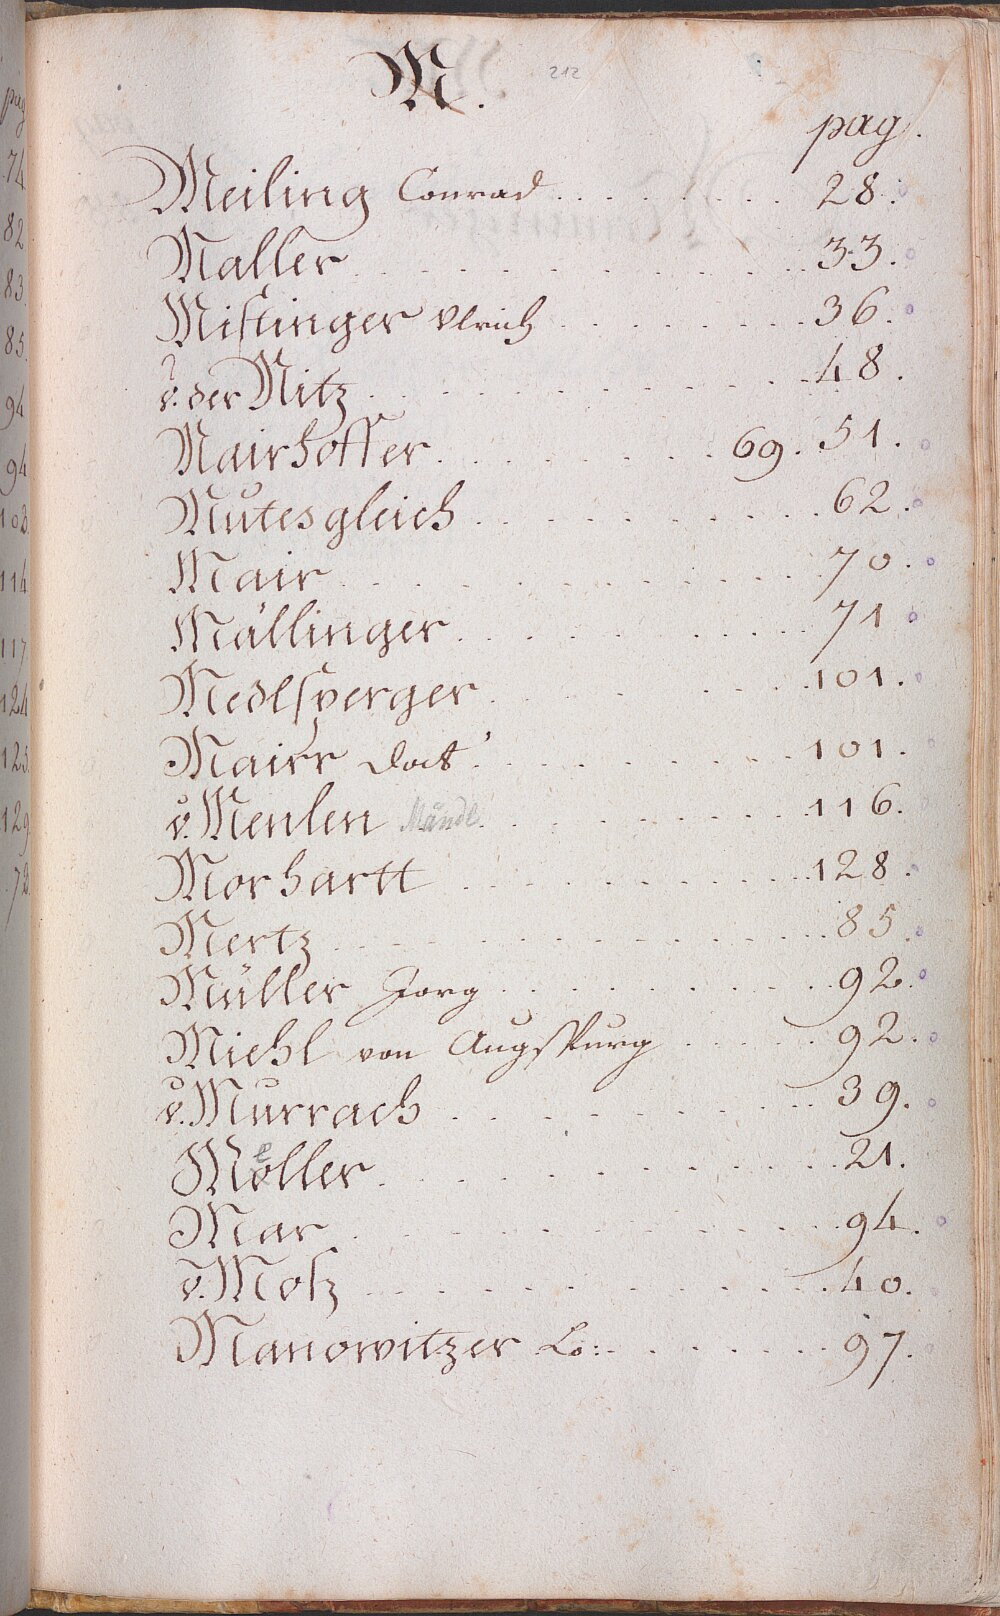 M.
212
pag.
Meiling Conrad . . . . . . . . 28.
Maller . . . . . . . . . . . 33.
Mistinger Ulrich . . . . . . . 36.
v. der Nitz . . . . . . . . . . 48.
Mairhoffer . . . . . . . 69. 51.
Mutesgleich . . . . . . . . . 62.
Mair . . . . . . . . . . . . 70.
Mällinger . . . . . . . . . . 71
Medlsperger . . . . . . . . . 101.
Mairr Doct: . . . . . . . . . 101.
v. Menlen Mändl . . . . . . . . 116.
Morhartt . . . . . . . . . . 128.
Mertz . . . . . . . . . . . . 85.
Müller Jorg . . . . . . . . . 92.
Miehl von Augspurg . . . . . 92.
v. Murrach . . . . . . . . . . 39.
Moller . . . . . . . . . . . 21.
Mar . . . . . . . . . . . . 94.
v. Mosz . . . . . . . . . . . 40.
Manowitzer Lo: . . . . . . . . 97.
74
82
83.
85.
94
94
103.
114
117
124
125.
129
72